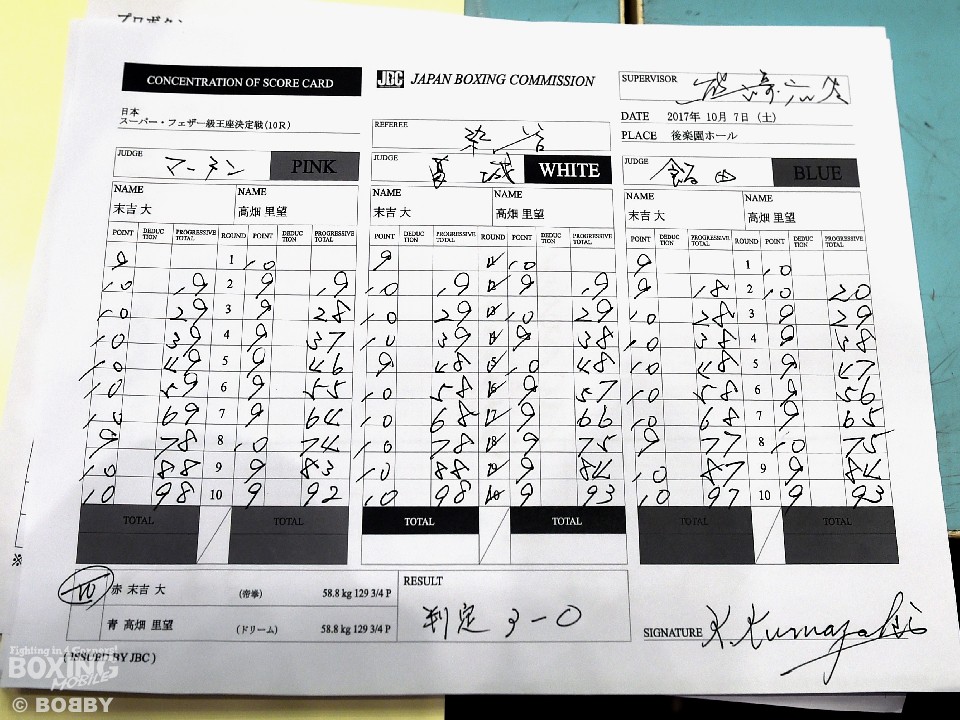 プロボクシ
CONCENTRATION OF SCORE CARD
JBC JAPAN BOXING COMMISSION
SUPERVISOR
日本
スーパー・フェザー級王座決定戦(10R)
REFEREE
DATE 2017年 10月 7日 (土)
PLACE 後楽園ホール
JUDGE マーチン PINK
JUDGE WHITE
JUDGE 飯田 BLUE
NAME NAME NAME NAME NAME NAME
末吉 大 高畑 里望 末吉 大 高畑 里望 末吉 大 高畑 里望
POINT DEDUCTION PROGRESSIVE TOTAL ROUND POINT DEDUCTION PROGRESSIVE TOTAL POINT DEDUCTION PROGRESSIVE TOTAL ROUND POINT DEDUCTION PROGRESSIVE TOTAL POINT DEDUCTION PROGRESSIVE TOTAL ROUND POINT DEDUCTION PROGRESSIVE TOTAL
9 1 10 9 11 10 9 1 10
10 19 2 9 19 10 19 12 9 19 9 18 2 10 20
10 29 3 9 28 10 29 13 10 29 10 28 3 9 29
10 39 4 9 37 10 39 14 9 38 10 38 4 9 38
10 49 5 9 46 9 48 15 10 48 10 48 5 9 47
10 59 6 9 55 10 58 16 9 57 10 58 6 9 56
10 69 7 9 64 10 68 17 9 66 10 68 7 9 65
9 78 8 10 74 10 78 18 9 75 9 77 8 10 75
10 88 9 9 83 10 88 19 9 84 10 87 9 9 84
10 98 10 9 92 10 98 20 9 93 10 97 10 9 93
TOTAL TOTAL TOTAL TOTAL TOTAL TOTAL
赤 末吉 大 (帝拳) 58.8 kg 129 3/4 P
青 高畑 里望 (ドリーム) 58.8 kg 129 3/4 P
RESULT
判定 3-0
SIGNATURE K.Kumazaki
(ISSUED BY JBC)
※
Fighting in 4 Corners!
BOXING
MOBILE
© BOBBY